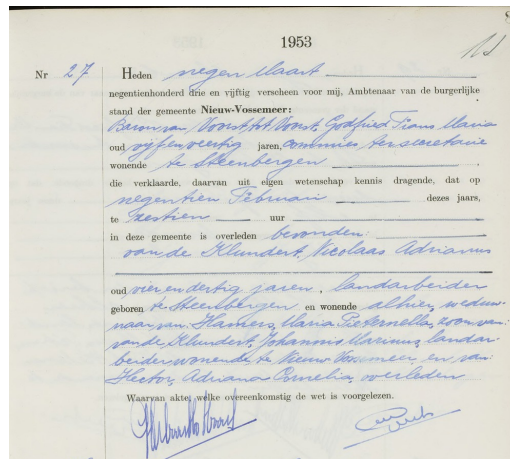 1953
Nr 27 Heden negen Maart
negentienhonderd drie en vijftig verscheen voor mij, Ambtenaar van de burgerlijke
stand der gemeente Nieuw-Vossemeer:
Baron van Voorst tot Voorst, Godfried Frans Maria
oud vijfenveertig jaren, commies ter secretarie
wonende te Steenbergen
die verklaarde, daarvan uit eigen wetenschap kennis dragende, dat op
negentien Februari dezes jaars,
te zestien uur
in deze gemeente is overleden bevonden:
van de Klundert, Nicolaas Adrianus
oud vierendertig jaren, landarbeider
geboren te Steenbergen en wonende alhier, weduw-
naar van: Hamers, Maria Pieternella, zoon van:
van de Klundert, Johannis Marinus, landar-
beider wonende te Nieuw Vossemeer, en van:
Hector, Adriana Cornelia, overleden
Waarvan akte, welke overeenkomstig de wet is voorgelezen.